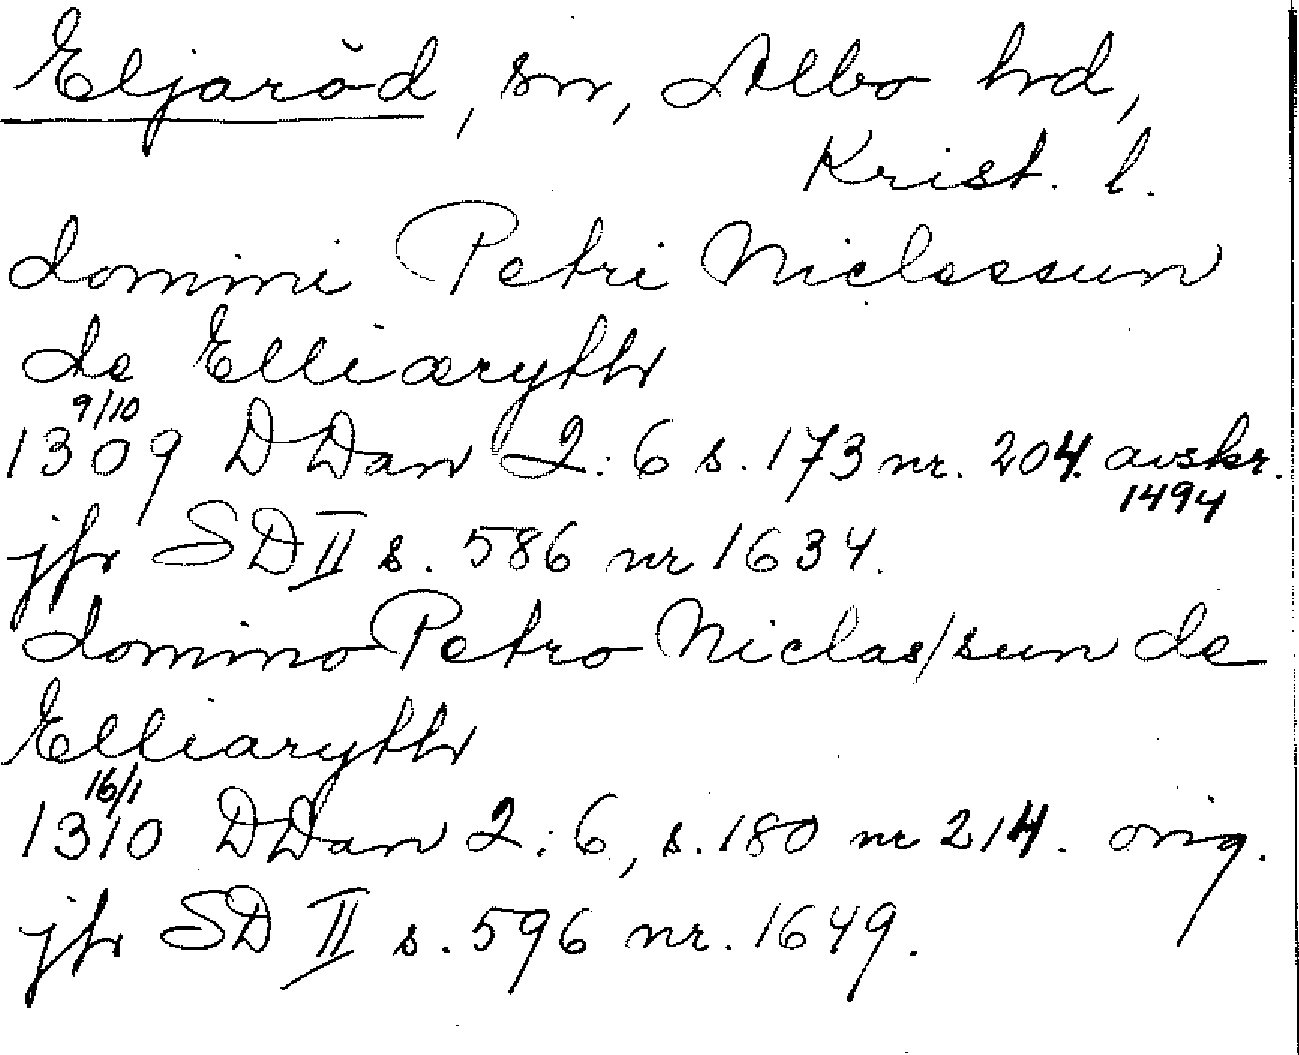 Eljaröd, sn, Albo hd,
Krist. l.
domini Petri Niclessun
de Elliæryth
9/10
1309 DDan 2:6 s. 173 nr. 204. avskr.
1494
jfr SD II s. 586 nr 1634.
domino Petro Niclas/sun de
Elliaryth
16/1
1310 DDan 2:6, s. 180 nr 214. orig.
jfr SD II s. 596 nr. 1649.